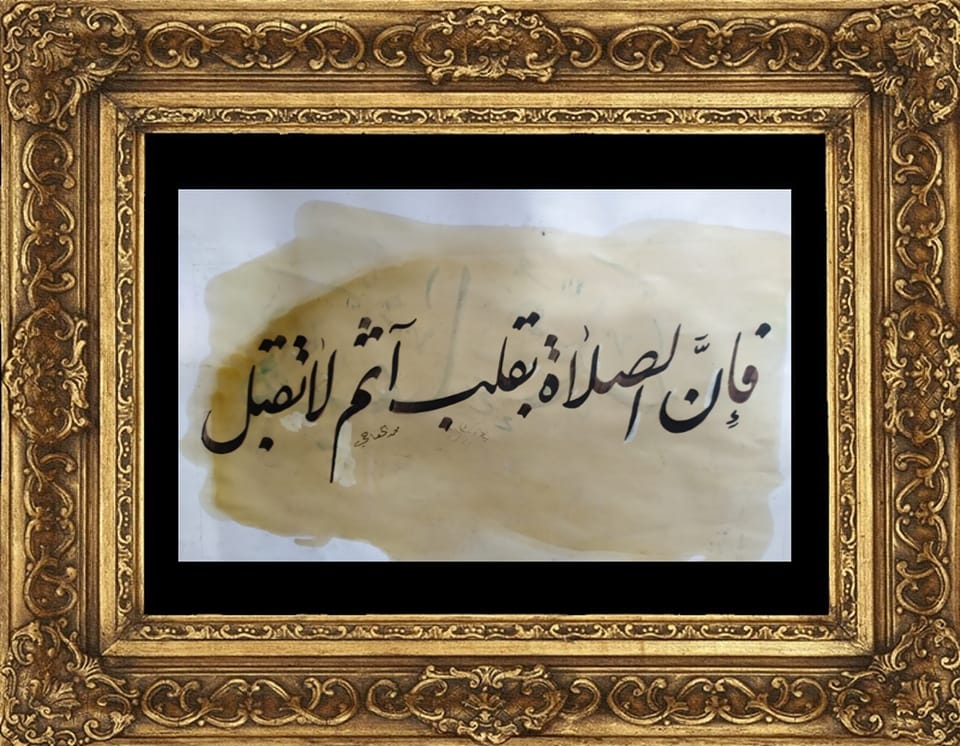 فإنَّ الصلاة بقلب آثم لا تقبل